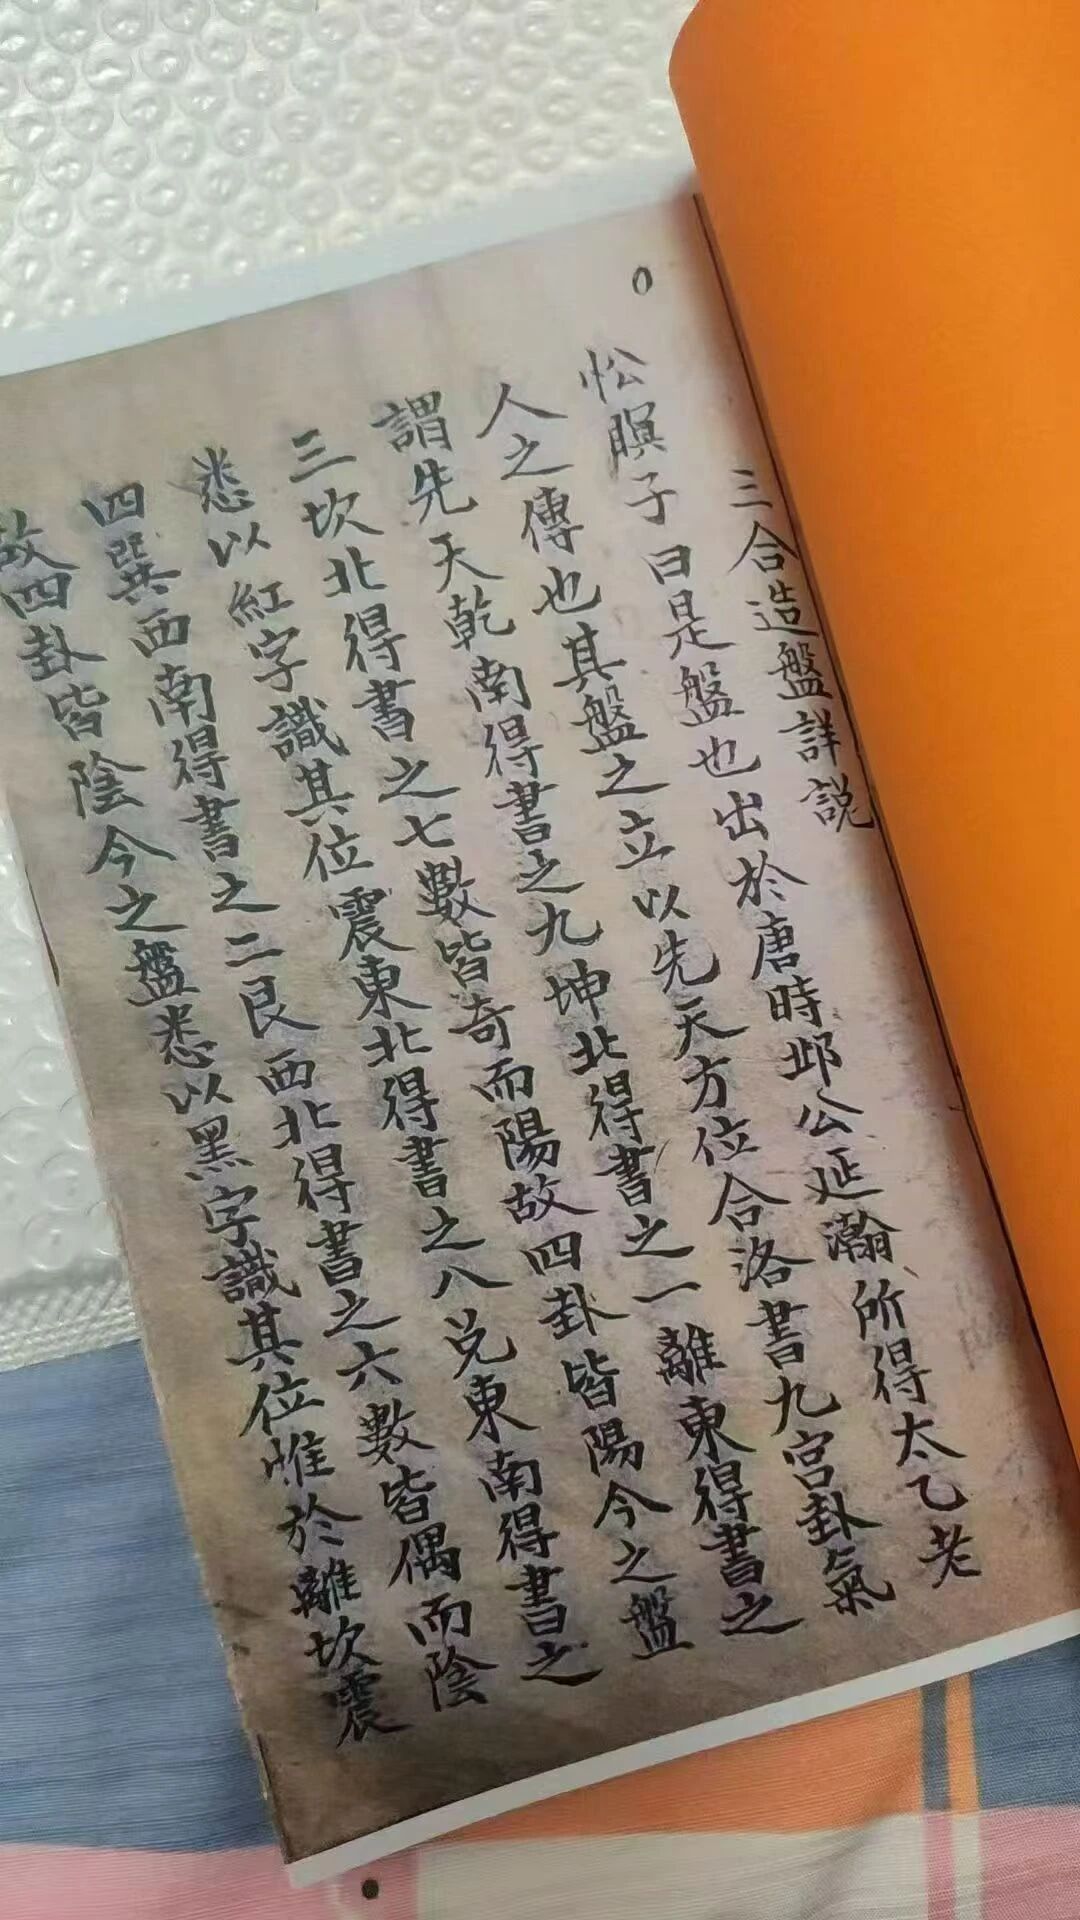 三合造盤詳說
○
子曰是盤也出於唐時邱公延瀚所得太乙老
人之傳也其盤之立以先天方位合洛書九宮卦氣
謂先天乾南得書之九坤北得書之一離東得書之
三坎北得書之七數皆奇而陽故四卦皆陽今之盤
悉以紅字識其位震東北得書之八兌東南得書之
四巽西南得書之二艮西北得書之六數皆偶而陰
故四卦皆陰今之盤悉以黑字識其位惟於離坎震